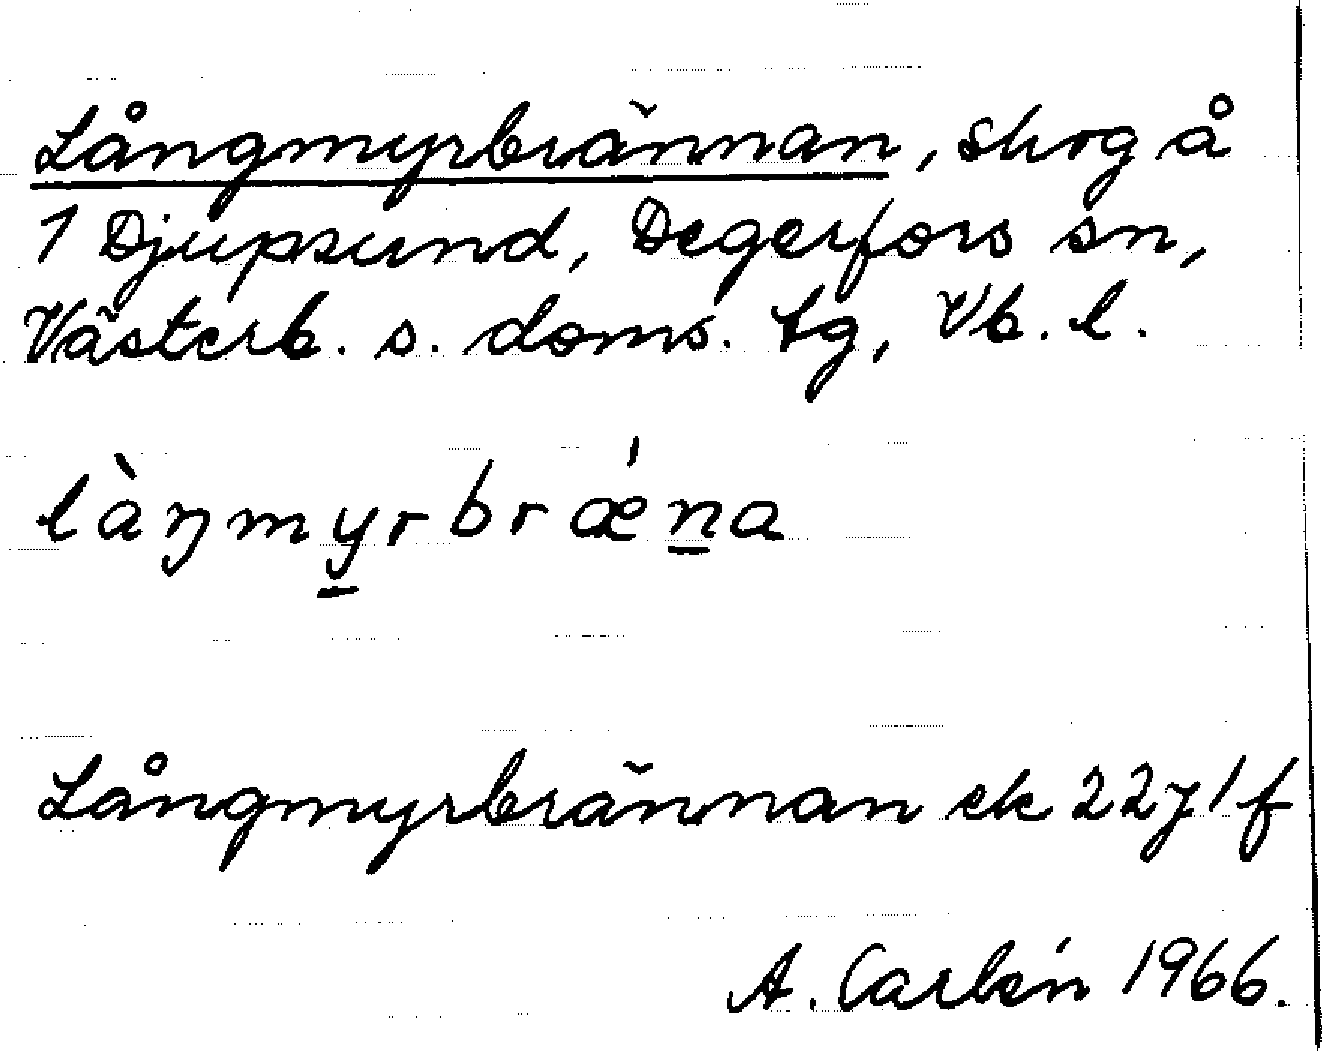 Långmyrbrännan, skog å
1 Djupsund, Degerfors sn,
Västerb. s. doms. tg, Vb. l.
làŋmyrbrǽna
Långmyrbrännan ek 22J1f
A. Carlén 1966.